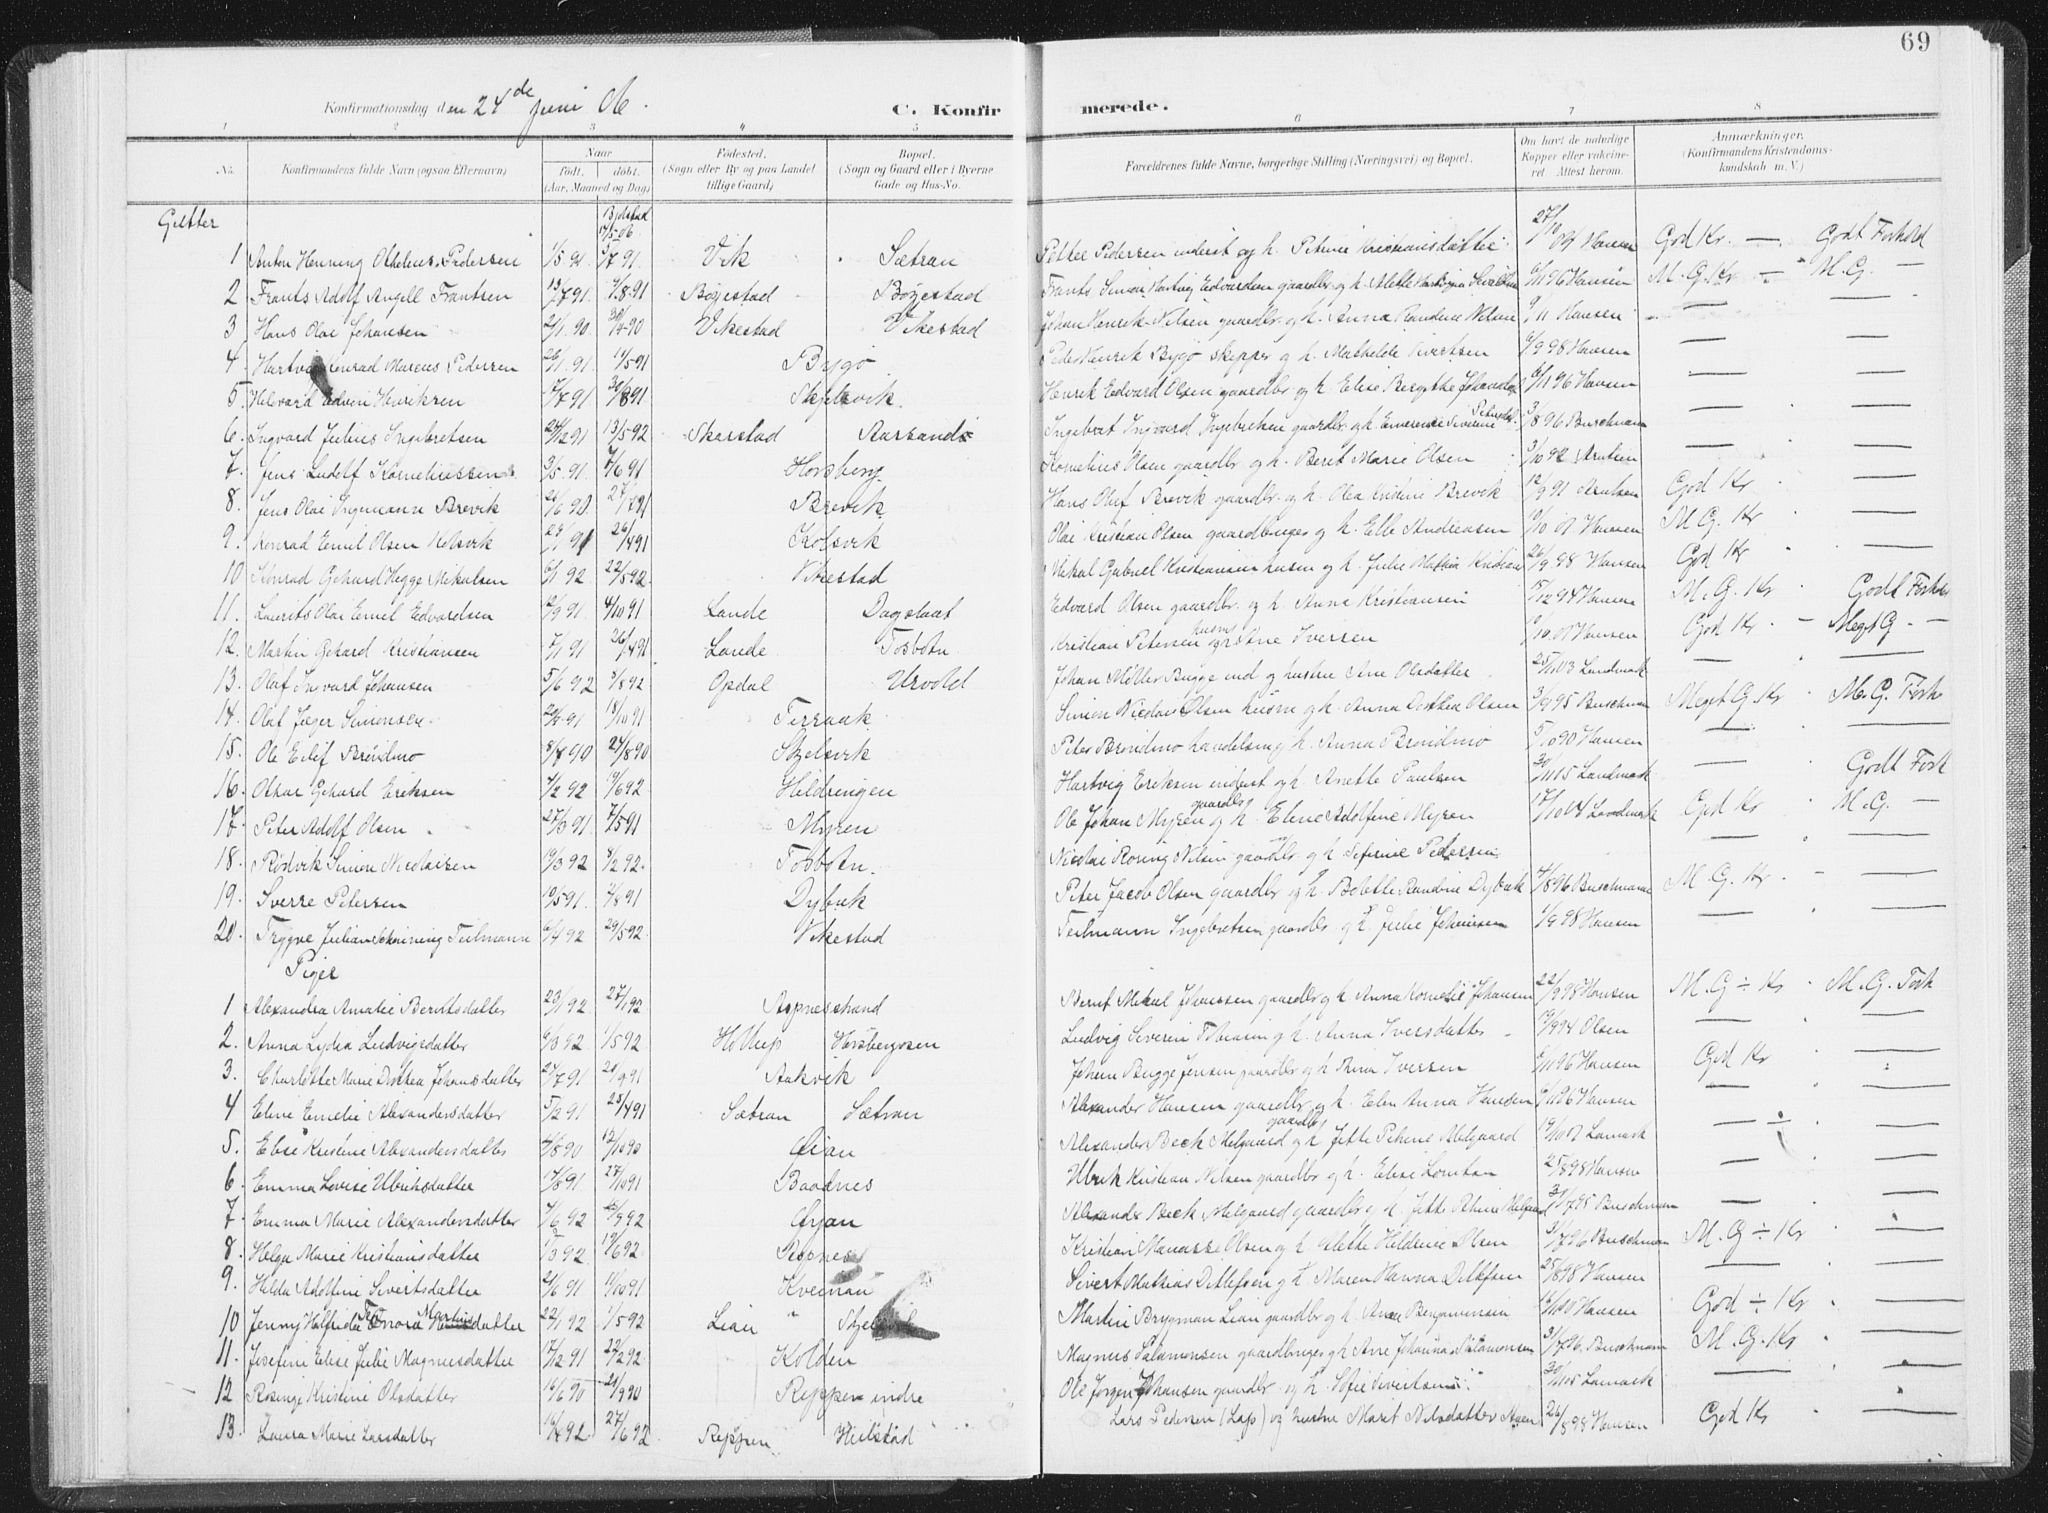 69
Konfirmationsdag den 24de Juni 06. C. Konfirmerede.
1 2 3 4 5 6 7 8
No. Konfirmandens fulde Navn (ogsaa Efternavn) Naar født. døbt. (Aar, Maaned og Dag) Fødested. (Sogn eller By og paa Landet tillige Gaard) Bopæl. (Sogn og Gaard eller i Byerne Gade og Hus-No. Forældrenes fulde Navne, borgerlige Stilling (Næringsvei) og Bopæl. Om havt de naturlige Kopper eller vakcineret Attest herom. Anmærkninger. (Konfirmandens Kristendomskundskab m. V.)
Gutter
1 Anton Henning Othelius Pedersen 1/5 91 5/7 91 Vik Sætran Petter Pedersen inderst og h. Petrine Kristiansdatter 27/10 01 Hansen God Kr. — Godt Forhold
2 Frants Adolf Angell Frantsen 13/7 91 /8 91 Bøgestad Bøgestad Frants Simon Hartvig Edvardsen gaardbr. og h. 6/11 96 Hansen M. G. Kr — M. G. —
3 Hans Olai Johansen 2/1 90 30/4 90 Vikestad Vikestad Johan Henrik Nilsen gaardbr. og h. Anna Randine Nilsen 9/11 Hansen — —
4. Hartvig Konrad Marcus Pedersen 26/1 91 11/5 91 Bygø Peder Henrik Bygø skipper og h. Mathilde Sivertsen 6/9 98 Hansen — —
5. Helvard Edvin Henriksen 17/7 91 30/8 91 Skjelsvik Henrik Edvard Olsen gaardbr. og h. Elise Bergitte Johansd. 6/11 96 Hansen — —
6. Ingvard Julius Ingebretsen 24/12 91 13/5 92 Skarstad Aarsand Ingebret Ingvard Ingebretsen gaardbr. og h. Emerense Severine Petersd. 3/8 96 Buschmann — —
7. Jens Ludolf Korneliussen 3/5 91 7/6 91 Horsberg Kornelius Olsen gaardbr og h. Beret Marie Olsen 3/10 92 Arntsen — —
8. Jens Olai Ingemann Brevik 21/6 90 27/7 91 Brevik Hans Olaf Brevik gaardbr. og h. Olea Kristine Brevik 12/9 91 Arntsen God Kr —
9. Konrad Emil Olsen Kolsvik 29/1 91 26/4 91 Kolsvik Olai Kristian Olsen gaardbruger og h. Elle Andreassen 10/10 01 Hansen M G. Kr —
10 Konrad Gehard Hegge Mikalsen 6/1 92 22/5 92 Vikestad Mikal Gabriel Kristiansen husm og h. Julie Mathea Kristiansen 26/9 98 Hansen God Kr —
11. Laurits Olai Emil Edvardsen 12/9 91 4/10 91 Lande Dagslaat Edvard Olsen gaardbr. og h. Anna Kristiansen 15/12 94 Hansen M. G. Kr Godt Forhold
12. Martin Gehard Kristiansen 7/1 91 26/4 91 Lande Tosbotn Kristian Petersen husm og h. Stine Iversen 9/10 01 Hansen God Kr. — Meget G. —
13. Olaf Ingvard Johansen 5/6 92 3/8 92 Opdal Urvold Johan Møller Bugge ind og hustru Ane Olsdatter 25/11 03 Landmark — —
14. Olaf Jæger Simonsen 20/8 91 18/10 91 Terraak Simon Nicolai Olsen husm og h. Anna Dorthea Olsen 3/9 95 Buschman Meget G. Kr M. G. Forh
15. Ole Eilif Brøndmo 8/8 90 24/8 90 Skjelsvik Peter Brøndmo handelsm og h. Anna Brøndmo 5/10 90 Hansen — —
16. Oskar Gehard Eriksen 4/2 92 19/6 92 Heldringen Hartvig Eriksen inderst og h. Anette Paulsen 20/11 05 Landmark — Godt Forh
17. Peter Adolf Olsen 27/3 91 7/5 91 Myren Ole Johan Myren gaardbr og h. Eline Adolfine Myren 17/10 04 Landmark God Kr M. G. —
18. Rødvik Simon Nicolaisen 19/3 92 8/2 92. Tosbotn. Nicolai Roring Nilsen gaardbr. og h. Sefirine Pedersen — —
19. Sverre Petersen 19/5 91. 2/8 91 Dybvik Peter Jacob Olsen gaardbr og h. Bolette Randine Dybvik 4/8 96 Buschmann M. G. Kr. — —
20. Trygve Julian Schøning Teilmann 6/4 92 29/5 92. Vikestad Teilmann Ingebretsen gaardbr. og h. Julie Johansen 1/9 98 Hansen — —
Piger
1 Alexandra Amalie Berntsdatter 23/1 92 27/1 92 Aspnesstrand Bernt Mikal Johanssen gaardbr og h. Anna Kornelie Johansen 22/9 98 Hansen M. G ÷ Kr M. G. Forh
2. Anna Lydia Ludvigsdatter 6/3 92 1/5 92 Holtup Horsbergosen Ludvig Severin Tobiasen og h. Anna Iversdatter 19/9 94 Olsen — —
3. Charlotte Marie Dortea Johansdatter 24/7 91 20/9 91 Aakvik Johan Bugge Jensen gaardbr og h Trina Iversen 6/11 96 Hansen God Kr —
4 Eline Emelie Alexandersdatter 5/2 91 25/4 91 Sætran Sætran Alexander Hansen gaardbr og h. Elen Anna Hansen 6/11 96 Hansen — —
5. Elise Kristine Alexandersdatter /8 90 12/10 90 Øian Alexander Beck Melgaard gaardbr og h. Jette Petrine Melgaard 19/10 01 Lamark — ÷ —
6. Emma Lovise Ulriksdatter 17/8 91 27/10 91 Baadnes Ulrik Kristian Nilsen gaardbr og h. Elise Lorntsen 25/8 98 Hansen — —
7. Emma Marie Alexandersdatter 4/6 92 25/9 92 Øyan Alexander Beck Melgaard gaardbr og h. Jette Petrine Melgaard 31/7 95 Buschmann — —
8. Helga Marie Kristiansdatter 17/3 92 19/6 92 Repnes Kristian Manasse Olsen og h. Mette Heldrine Olsen 31/7 96 Buschman M. G ÷ Kr —
9. Hilda Adolfine Sivertsdatter 2/6 91 11/10 91 Kveinau Sivert Mathias Ditlefsen og h. Maren Hanna Ditlefsen 25/8 98 Hansen — —
10 Jenny Helfrida Martinsdatter 22/1 92 1/5 92 Lian " Martin Brygman Lian gaardbr og h. Anna Benjaminsen Hansen God ÷ Kr —
11. Josefine Elise Julie Magnusdatter 17/12 91 22/2 92 Kolden Magnus Salamonsen gaardbruger og h Ane Johanna Salamonsen 31/7 96. Buschmann M. G. Kr —
12 Rosinge Kristine Olsdatter 16/6 90 21/9 90 Reppen indre Ole Jørgen Johansen gaardbr og h. Sofie Sivertsen 20/11 05 Lamark — —
13. Laura Marie Larsdatter 16/4 92 27/6 92 Reppen Heilstad Lars Pedersen (Lap) og hustru Marit Nilsdatter 26/8 98 Hansen God Kr —